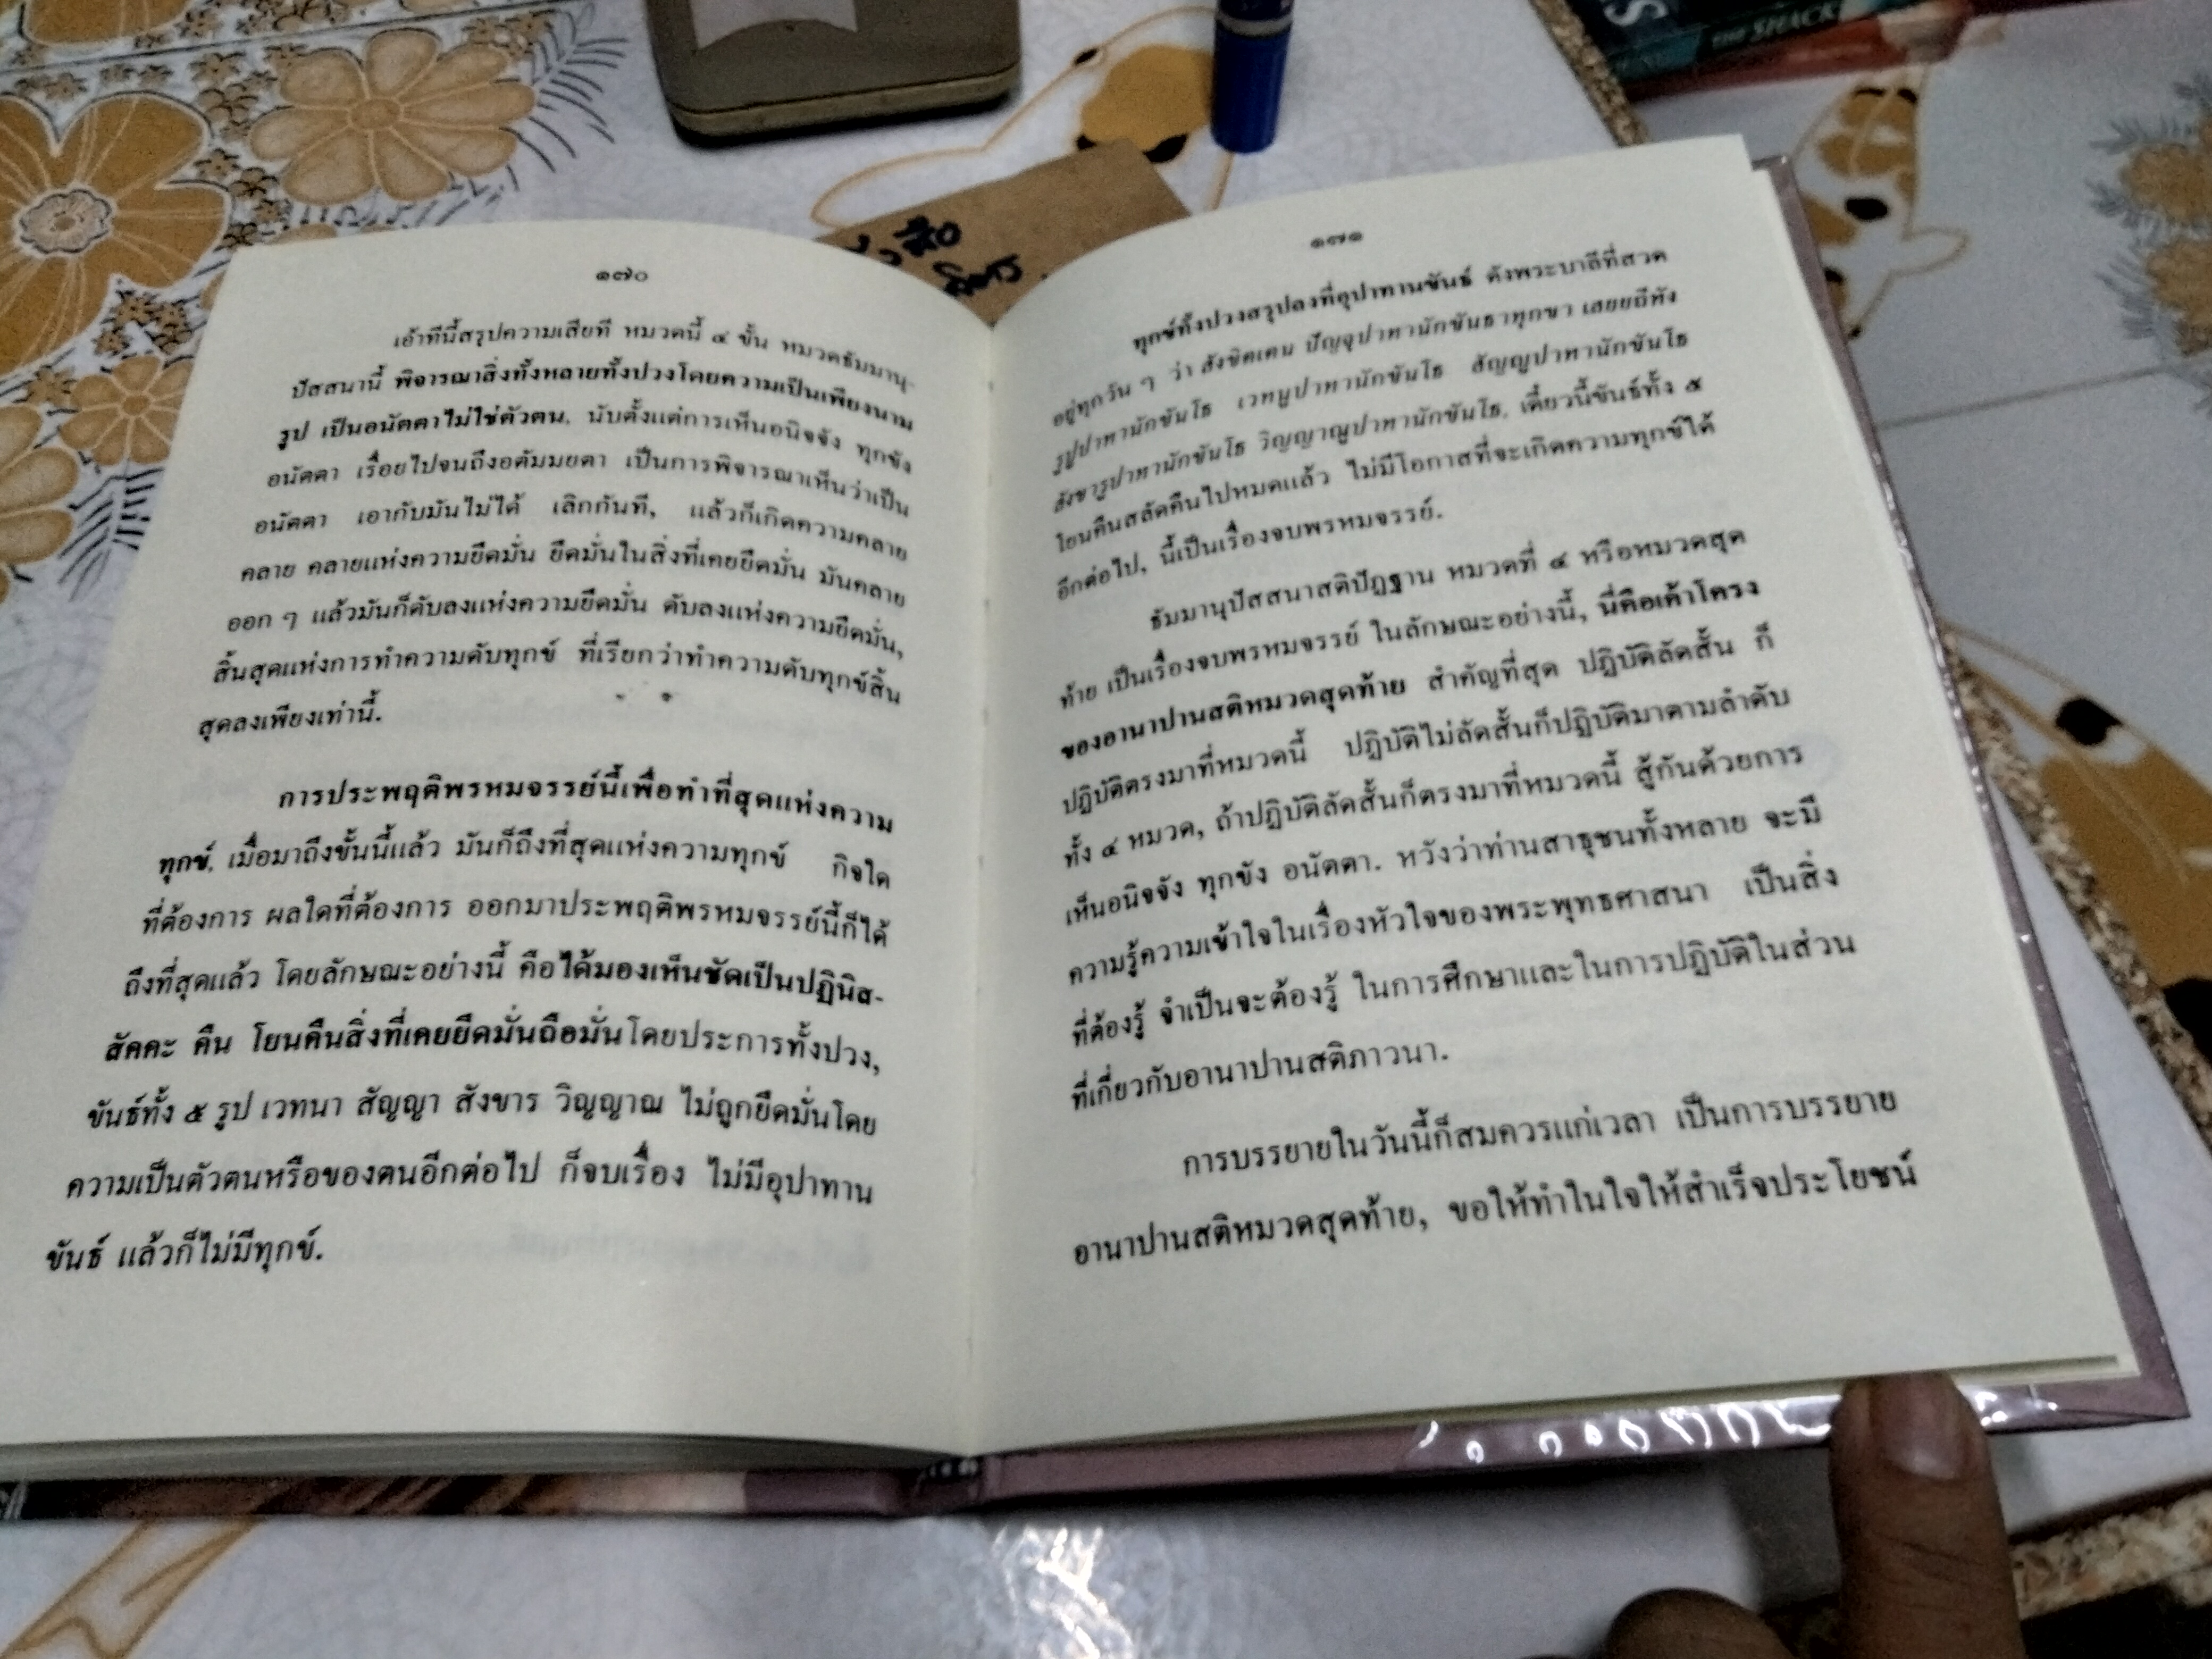 ๑๗๐
เอ้าทีนี้สรุปความเสียที หมวดนี้ ๔ ขั้น หมวดธัมมานุ-
ปัสสนานี้ พิจารณาสิ่งทั้งหลายทั้งปวงโดยความเป็นเพียงนาม
รูป เป็นอนัตตาไม่ใช่ตัวตน. นับตั้งแต่การเห็นอนิจจัง ทุกขัง
อนัตตา เรื่อยไปจนถึงอตัมมยตา เป็นการพิจารณาเห็นว่าเป็น
อนัตตา เอากับมันไม่ได้ เลิกกันที, แล้วก็เกิดความคลาย
คลาย คลายแห่งความยึดมั่น ยึดมั่นในสิ่งที่เคยยึดมั่น มันคลาย
ออก ๆ แล้วมันก็ดับลงแห่งความยึดมั่น ดับลงแห่งความยึดมั่น,
สิ้นสุดแห่งการทำความดับทุกข์ ที่เรียกว่าทำความดับทุกข์สิ้น
สุดลงเพียงเท่านี้.
การประพฤติพรหมจรรย์นี้เพื่อทำที่สุดแห่งความ
ทุกข์. เมื่อมาถึงขั้นนี้แล้ว มันก็ถึงที่สุดแห่งความทุกข์ กิจใด
ที่ต้องการ ผลใดที่ต้องการ ออกมาประพฤติพรหมจรรย์นี้ก็ได้
ถึงที่สุดแล้ว โดยลักษณะอย่างนี้ คือได้มองเห็นชัดเป็นปฏินิส-
สัคคะ คืน โยนคืนสิ่งที่เคยยึดมั่นถือมั่นโดยประการทั้งปวง,
ขันธ์ทั้ง ๕ รูป เวทนา สัญญา สังขาร วิญญาณ ไม่ถูกยึดมั่นโดย
ความเป็นตัวตนหรือของตนอีกต่อไป ก็จบเรื่อง ไม่มีอุปาทาน
ขันธ์ แล้วก็ไม่มีทุกข์.
๑๗๑
ทุกข์ทั้งปวงสรุปลงที่อุปาทานขันธ์ ดังพระบาลีที่สวด
อยู่ทุกวัน ๆ ว่า สังขิตเตน ปัญจุปาทานักขันธาทุกขา เสยยถีทัง
รูปูปาทานักขันโธ เวทนูปาทานักขันโธ สัญญูปาทานักขันโธ
สังขารูปาทานักขันโธ วิญญาณูปาทานักขันโธ. เดี๋ยวนี้ขันธ์ทั้ง ๕
โยนคืนสลัดคืนไปหมดแล้ว ไม่มีโอกาสที่จะเกิดความทุกข์ได้
อีกต่อไป, นี้เป็นเรื่องจบพรหมจรรย์.
ธัมมานุปัสสนาสติปัฏฐาน หมวดที่ ๔ หรือหมวดสุด
ท้าย เป็นเรื่องจบพรหมจรรย์ ในลักษณะอย่างนี้, นี่คือเค้าโครง
ของอานาปานสติหมวดสุดท้าย สำคัญที่สุด ปฏิบัติลัดสั้น ก็
ปฏิบัติตรงมาที่หมวดนี้ ปฏิบัติไม่ลัดสั้นก็ปฏิบัติมาตามลำดับ
ทั้ง ๔ หมวด, ถ้าปฏิบัติลัดสั้นก็ตรงมาที่หมวดนี้ สู้กันด้วยการ
เห็นอนิจจัง ทุกขัง อนัตตา. หวังว่าท่านสาธุชนทั้งหลาย จะมี
ความรู้ความเข้าใจในเรื่องหัวใจของพระพุทธศาสนา เป็นสิ่ง
ที่ต้องรู้ จำเป็นจะต้องรู้ ในการศึกษาและในการปฏิบัติในส่วน
ที่เกี่ยวกับอานาปานสติภาวนา.
การบรรยายในวันนี้ก็สมควรแก่เวลา เป็นการบรรยาย
อานาปานสติหมวดสุดท้าย, ขอให้ทำในใจให้สำเร็จประโยชน์
THE SHACK